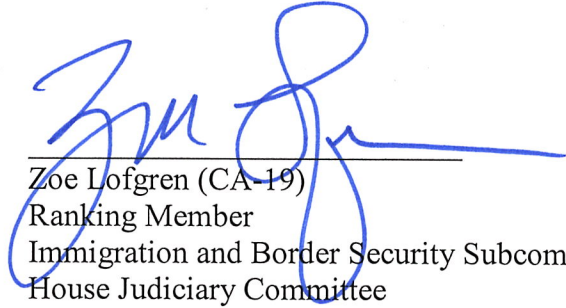 Zoe Lofgren (CA-19)
Ranking Member
Immigration and Border Security Subcom
House Judiciary Committee